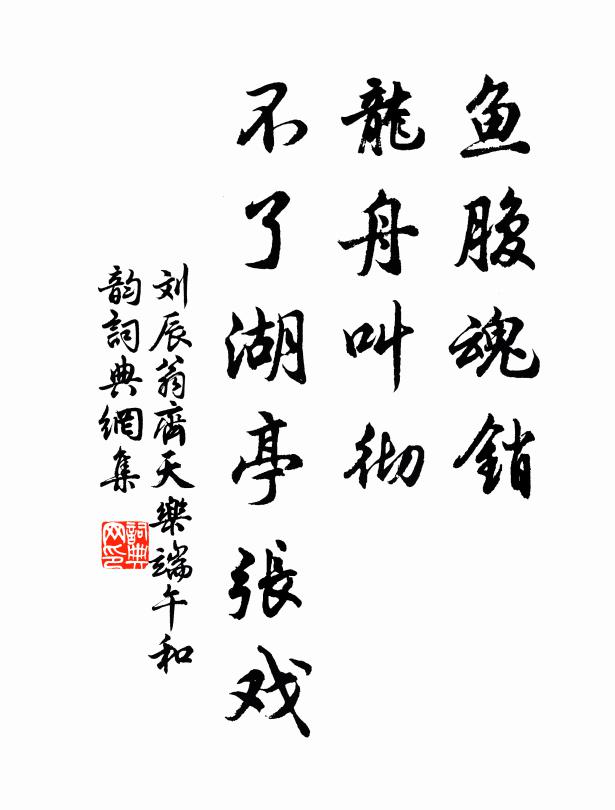 鱼腹魂銷
龍舟叫彻
不了湖亭張戏
刘辰翁齊天樂端午和
韵詞典網集
詞典
网印